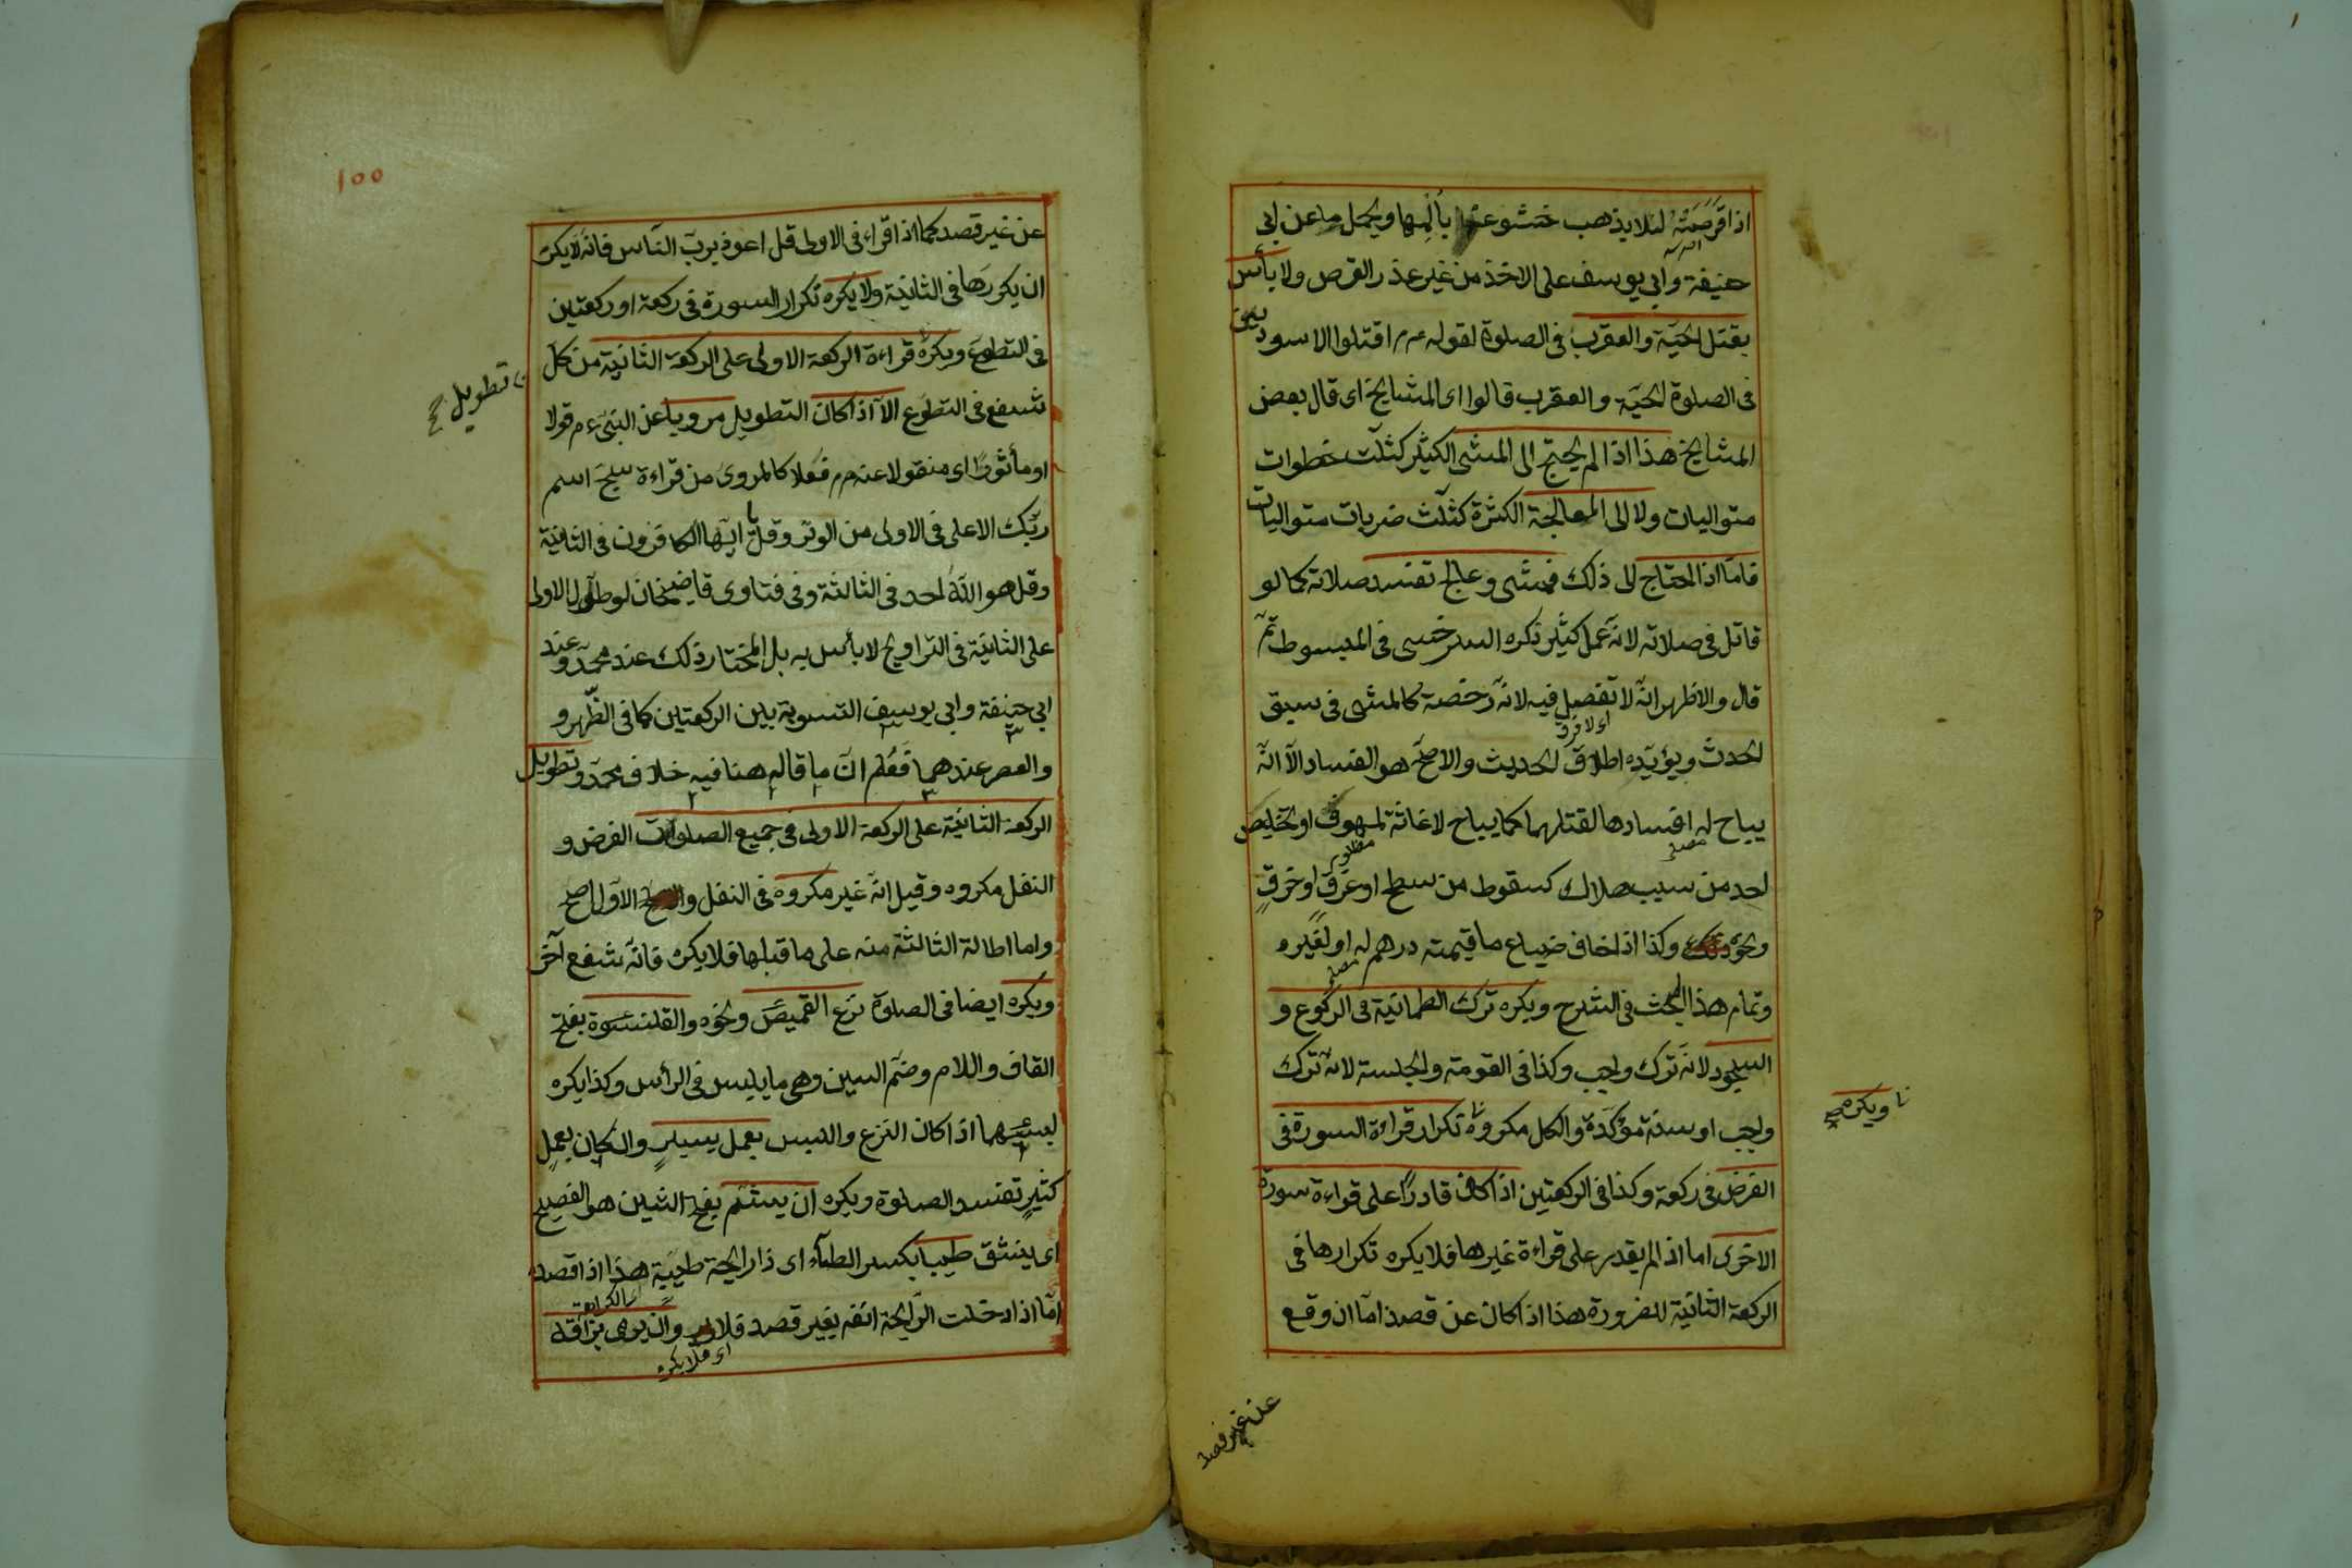 اذا قرصته لئلا يذهب خشوعه بألمها ويحمل ما عن ابي
حنيفة وابي يوسف على الاخذ من غير عذر القرص ولا بأس
بقتل الحيّة والعقرب في الصلوة لقوله عم اقتلوا الاسودين
في الصلوة الحيّة والعقرب قالوا اى المشايخ اى قال بعض
المشايخ هذا اذا لم يحتج الى المشى الكثير كثلث خطوات
متواليات ولا الى المعالجة الكثرة كثلث ضربات متواليات
فامّا اذا احتاج الى ذلك فمشى وعالج تفسد صلاته كما لو
قاتل في صلاته لانّه عمل كثير ذكره السرخسى في المبسوط ثمّ
قال والاظهر انّه لا تفصيل فيه لانّه رخصة كالمشى في سبق
اى لا فرق
الحدث ويؤيّده اطلاق الحديث والاصحّ هو الفساد الّا انّه
يباح له افسادها لقتلهما كما يباح لاغاثة لملهوف او تخليص
مظلوم
احد من سبب هلاك كسقوط من سطح او غرق او حرق
ونحو ذلك وكذا اذا خاف ضياع ما قيمته درهم له او لغيره
وتمام هذا البحث في الشرح ويكره ترك الطمانية في الركوع و
السجود لانّه ترك واجب وكذا في القومة والجلسة لانّه ترك
واجب او سنة مؤكّدة والكل مكروه تكرار قراءة السورة في
ويكره صح
الفرض في ركعة وكذا في الركعتين اذا كان قادرًا على قراءة سورة
الاخرى اما اذا لم يقدر على قراءة غيرها فلا يكره تكرارها في
الركعة الثانية للضرورة هذا اذا كان عن قصد امّا ان وقع
عن غير قصد
١٠٥
عن غير قصد كما اذا قراء في الاولى قل اعوذ بربّ النّاس فانّه لا يكره
ان يكررها في الثانية ولا يكره تكرار السورة في ركعة او ركعتين
في التطوّع ويكره قراءة الركعة الاولى على الركعة الثانية من كلّ
تطويل صح
شفع في التطوّع الّا اذا كان التطويل مرويا عن النبىّ عم قولا
او مأثورًا اى منقولا عنه عم فعلا كالمروى من قراءة سبّح اسم
ربّك الاعلى في الاولى من الوتر وقل يا ايّها الكافرون في الثانية
وقل هو الله احد في الثالثة وفى فتاوى قاضيخان لو طوّل الاولى
على الثانية في التراويح لا بأس به بل المختار ذلك عند محمّد وعند
ابي حنيفة وابي يوسف التسوية بين الركعتين كما في الظّهر و
والعصر عندهما فَعُلم انّ ما قاله هنا فيه خلاف محمّد وتطويل
الركعة الثانية على الركعة الاولى في جميع الصلوات الفرض و
النفل مكروه وقيل انّه غير مكروه في النفل الاوّل اصح
واما اطالة الثالثة منه على ما قبلها فلا يكره فانّه شفع آخر
ويكره ايضا في الصلوة نزع القميص ونحوه والقلنسوة بفتح
القاف واللام وضمّ السين وهى ما يلبس في الرأس وكذا يكره
لبسها اذا كان النزع واللبس بعمل يسير وان كان بعمل
كثير تفسد الصلوة ويكره ان يشمّ بفتح الشين هو الفصيح
اى ينشق طيبا بكسر الطاء اى ذا رائحة طيبة هذا اذا قصده
امّا اذا دخلت الرّايحة انفه بغير قصد فلا وان يرمى بزاقه
اى فلا يكره